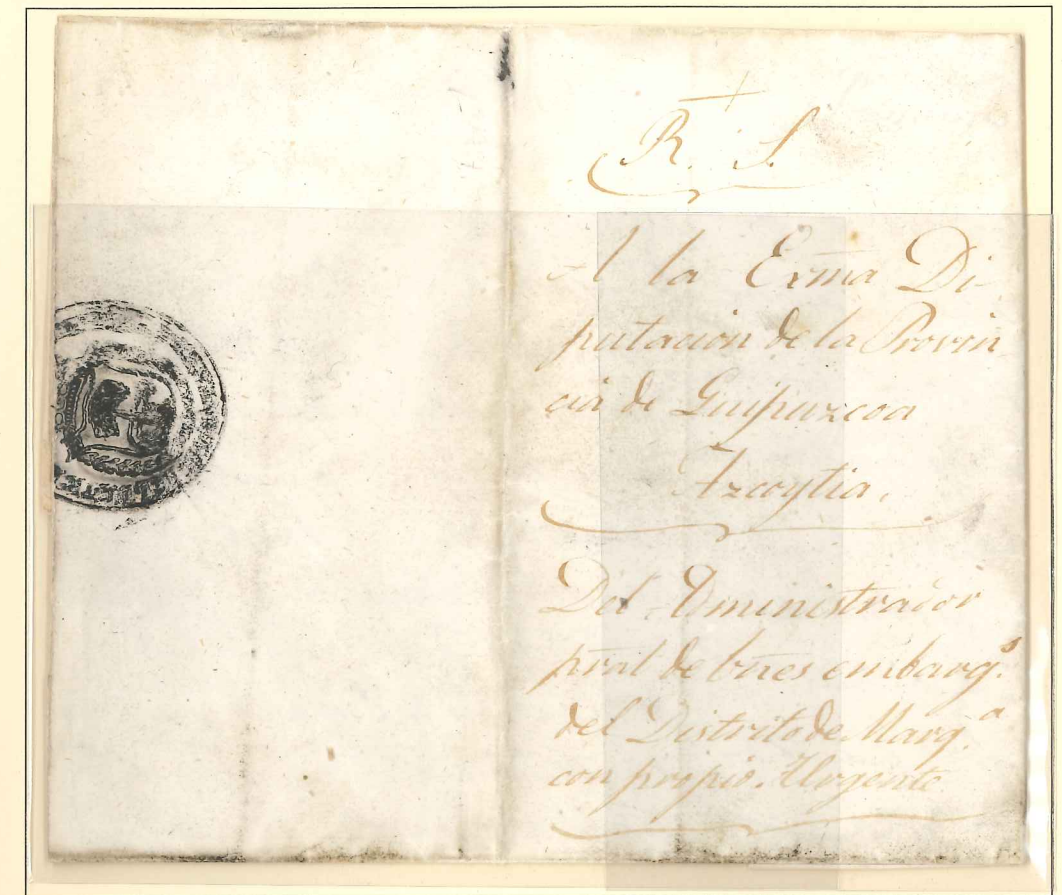 R. S.
A la Exma Di-
putacion de la Provin
cia de Guipuzcoa
Azcoytia.
Del Administrador
pral de bnes embarg.s
del Distrito de Marq.a
con propio. Urgente